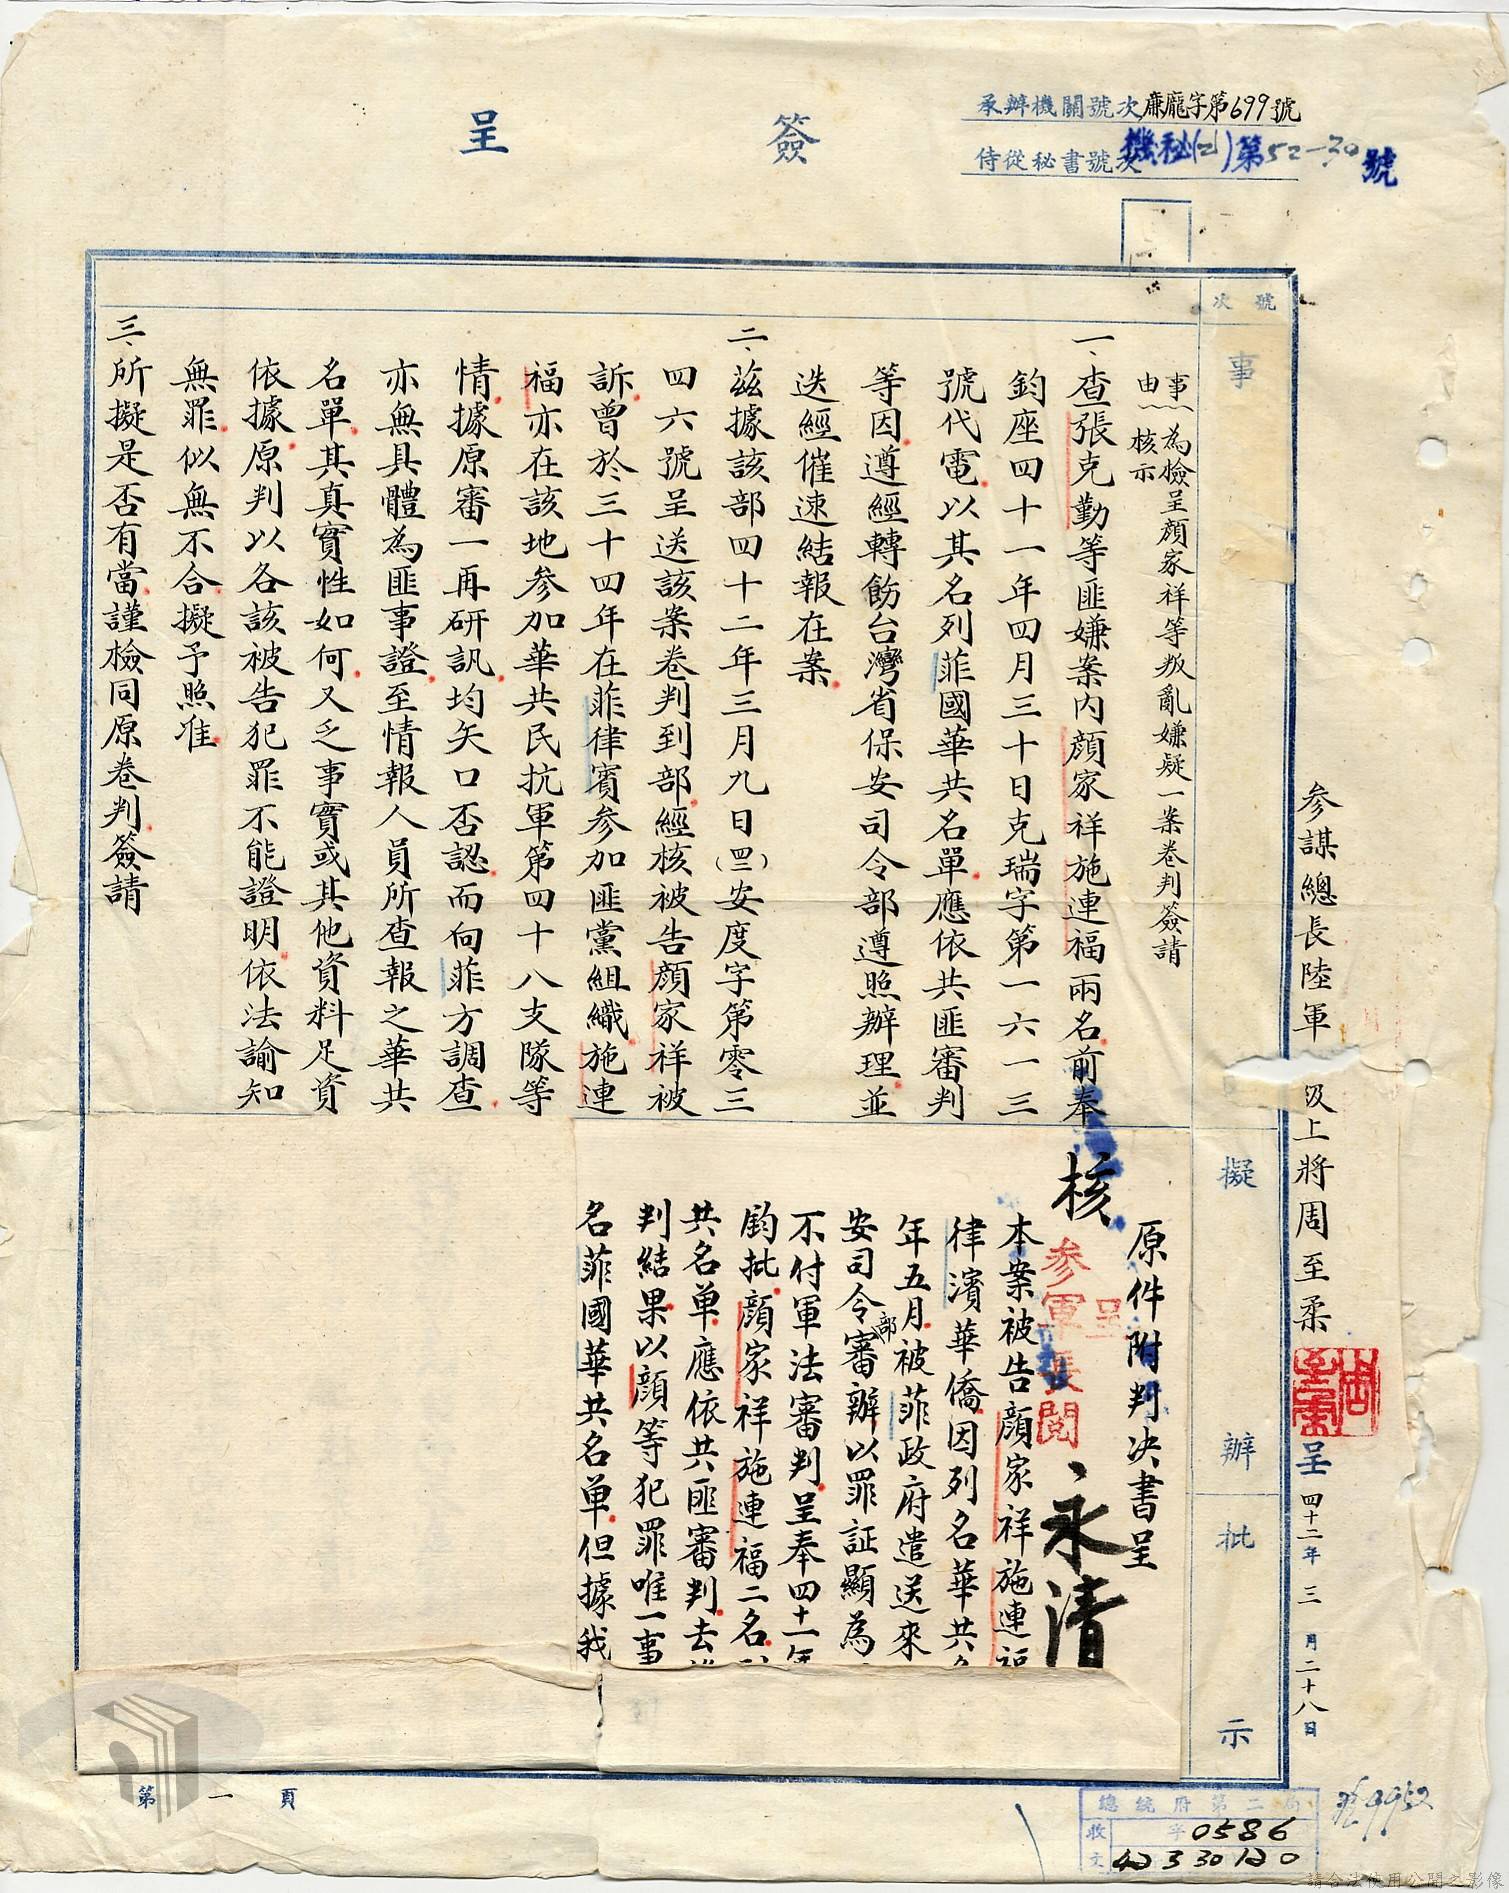 簽呈
承辦機關號次廉龐字第699號
侍從秘書號次機秘(乙)第52-30號
號次
事由
事由：為檢呈顏家祥等叛亂嫌疑一案卷判簽請
核示
一、查張克勤等匪嫌案內顏家祥施連福兩名前奉
鈞座四十一年四月三十日克瑞字第一六一三
號代電以其名列菲國華共名單應依共匪審判
等因遵經轉飭台灣省保安司令部遵照辦理並
迭經催速結報在案
二、茲據該部四十二年三月九日(四二)安度字第零三
四六號呈送該案卷判到部經核被告顏家祥被
訴曾於三十四年在菲律賓參加匪黨組織施連
福亦在該地參加華共民抗軍第四十八支隊等
情據原審一再研訊均矢口否認而向菲方調查
亦無具體為匪事證至情報人員所查報之華共
名單其真實性如何又乏事實或其他資料足資
依據原判以各該被告犯罪不能證明依法諭知
無罪似無不合擬予照准
三、所擬是否有當謹檢同原卷判簽請
核
參謀總長陸軍級上將周至柔
周至柔
呈
四十二年三月二十八日
擬辦
批示
原件附判決書呈
呈
參軍長閱
永清
本案被告顏家祥施連福
律濱華僑因列名華共
年五月被菲政府遣送來
安司令部審辦以罪証顯為
不付軍法審判呈奉四十一年
鈞批顏家祥施連福二名
共名單應依共匪審判去
判結果以顏等犯罪唯一事
名菲國華共名單但據我
第一頁
總統府第二局
收文
字0586
42 3 30 120
9952
請合法使用公開之影像